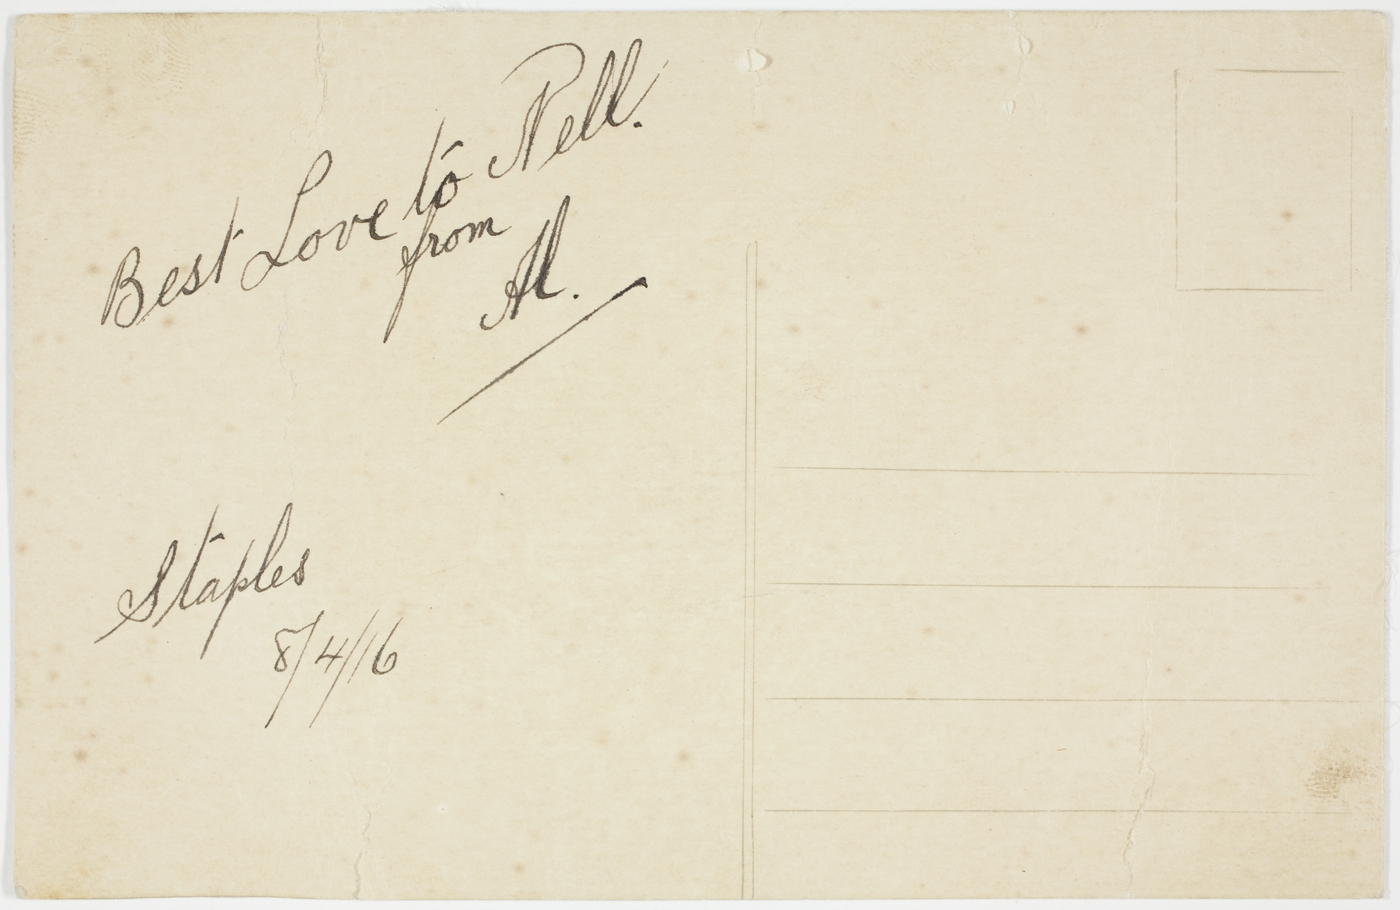 Best Love to Nell.
from
Al.
Staples
8/4/16